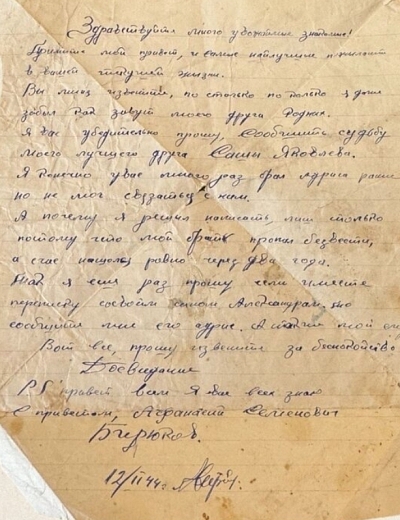 Здравствуйти много уважаемые знакомые!
Примите мой привет, и самые наилучшие пожелания
в вашей текущей жизни.
Вы меня извените, но столько по только я даже
забыл как завут моего друга Родных.
Я вас убедительно прошу, Сообщить судьбу
моего лучшего друга Саши Яковлева.
Я конечно у вас много раз брал адриса ранше
но не мог связаться с ним.
А почему я решил написать, лиш столько
потому что мой брат пропал безвести,
а счас нашолся ровно через два года.
Так я еще раз прошу если имеете
переписку своим сином Александрам, то
сообщите мне его адрис. А также мой ему
Вот все, прошу извените за беспокойство
Досвидание
P.S привет вам Я вас всех знаю
С приветом, Афанасий Семенович
Бирюков.
12/II 44г.